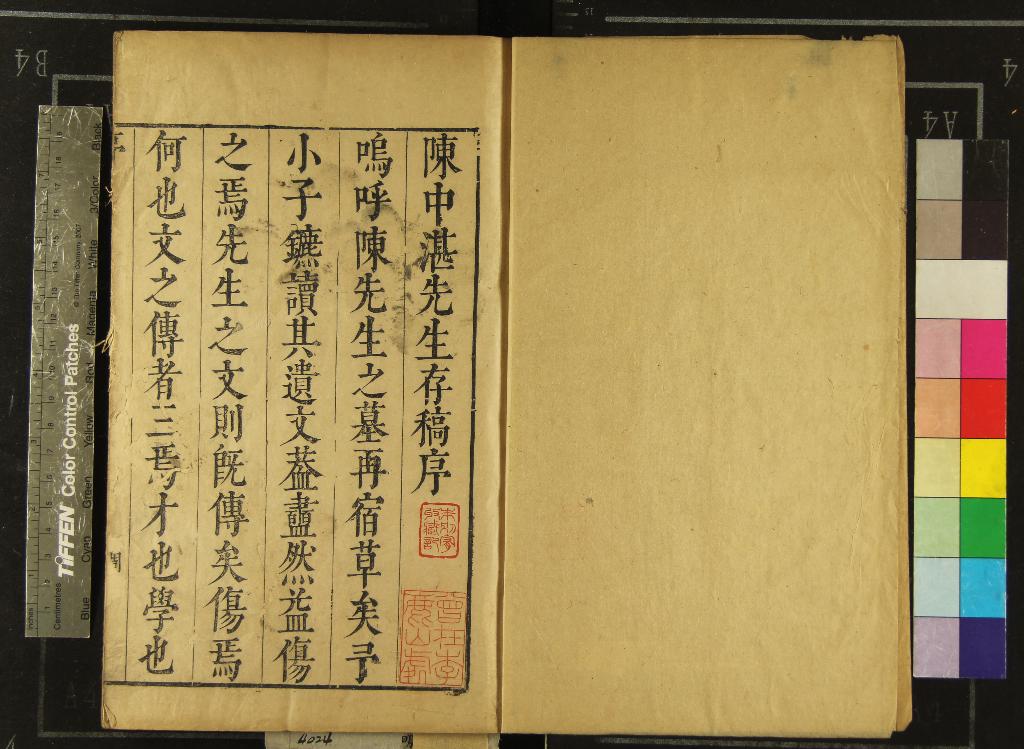 陳中湛先生存稿序
嗚呼陳先生之墓再宿草矣予
小子鑣讀其遺文葢衋然益傷
之焉先生之文則旣傳矣傷焉
何也文之傳者三焉才也學也
TIFFEN Color Control Patches
© The Tiffen Company, 2007
Inches
Centimetres
Blue
Cyan
Green
Yellow
Red
Magenta
White
3/Color
Black
B4
A4
A4
4024